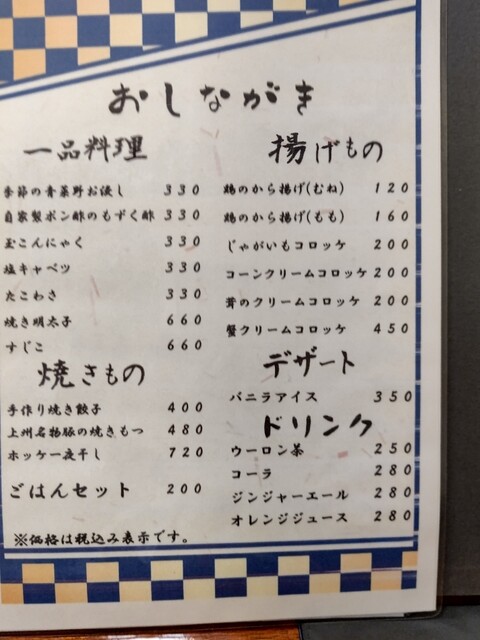 おしながき
一品料理
季節の青菜野お浸し 330
自家製ポン酢のもずく酢 330
玉こんにゃく 330
塩キャベツ 330
たこわさ 330
焼き明太子 660
すじこ 660
焼きもの
手作り焼き餃子 400
上州名物豚の焼きもつ 480
ホッケ一夜干し 720
ごはんセット 200
※価格は税込み表示です。
揚げもの
鶏のから揚げ(むね) 120
鶏のから揚げ(もも) 160
じゃがいもコロッケ 200
コーンクリームコロッケ 200
茸のクリームコロッケ 200
蟹クリームコロッケ 450
デザート
バニラアイス 350
ドリンク
ウーロン茶 250
コーラ 280
ジンジャーエール 280
オレンジジュース 280